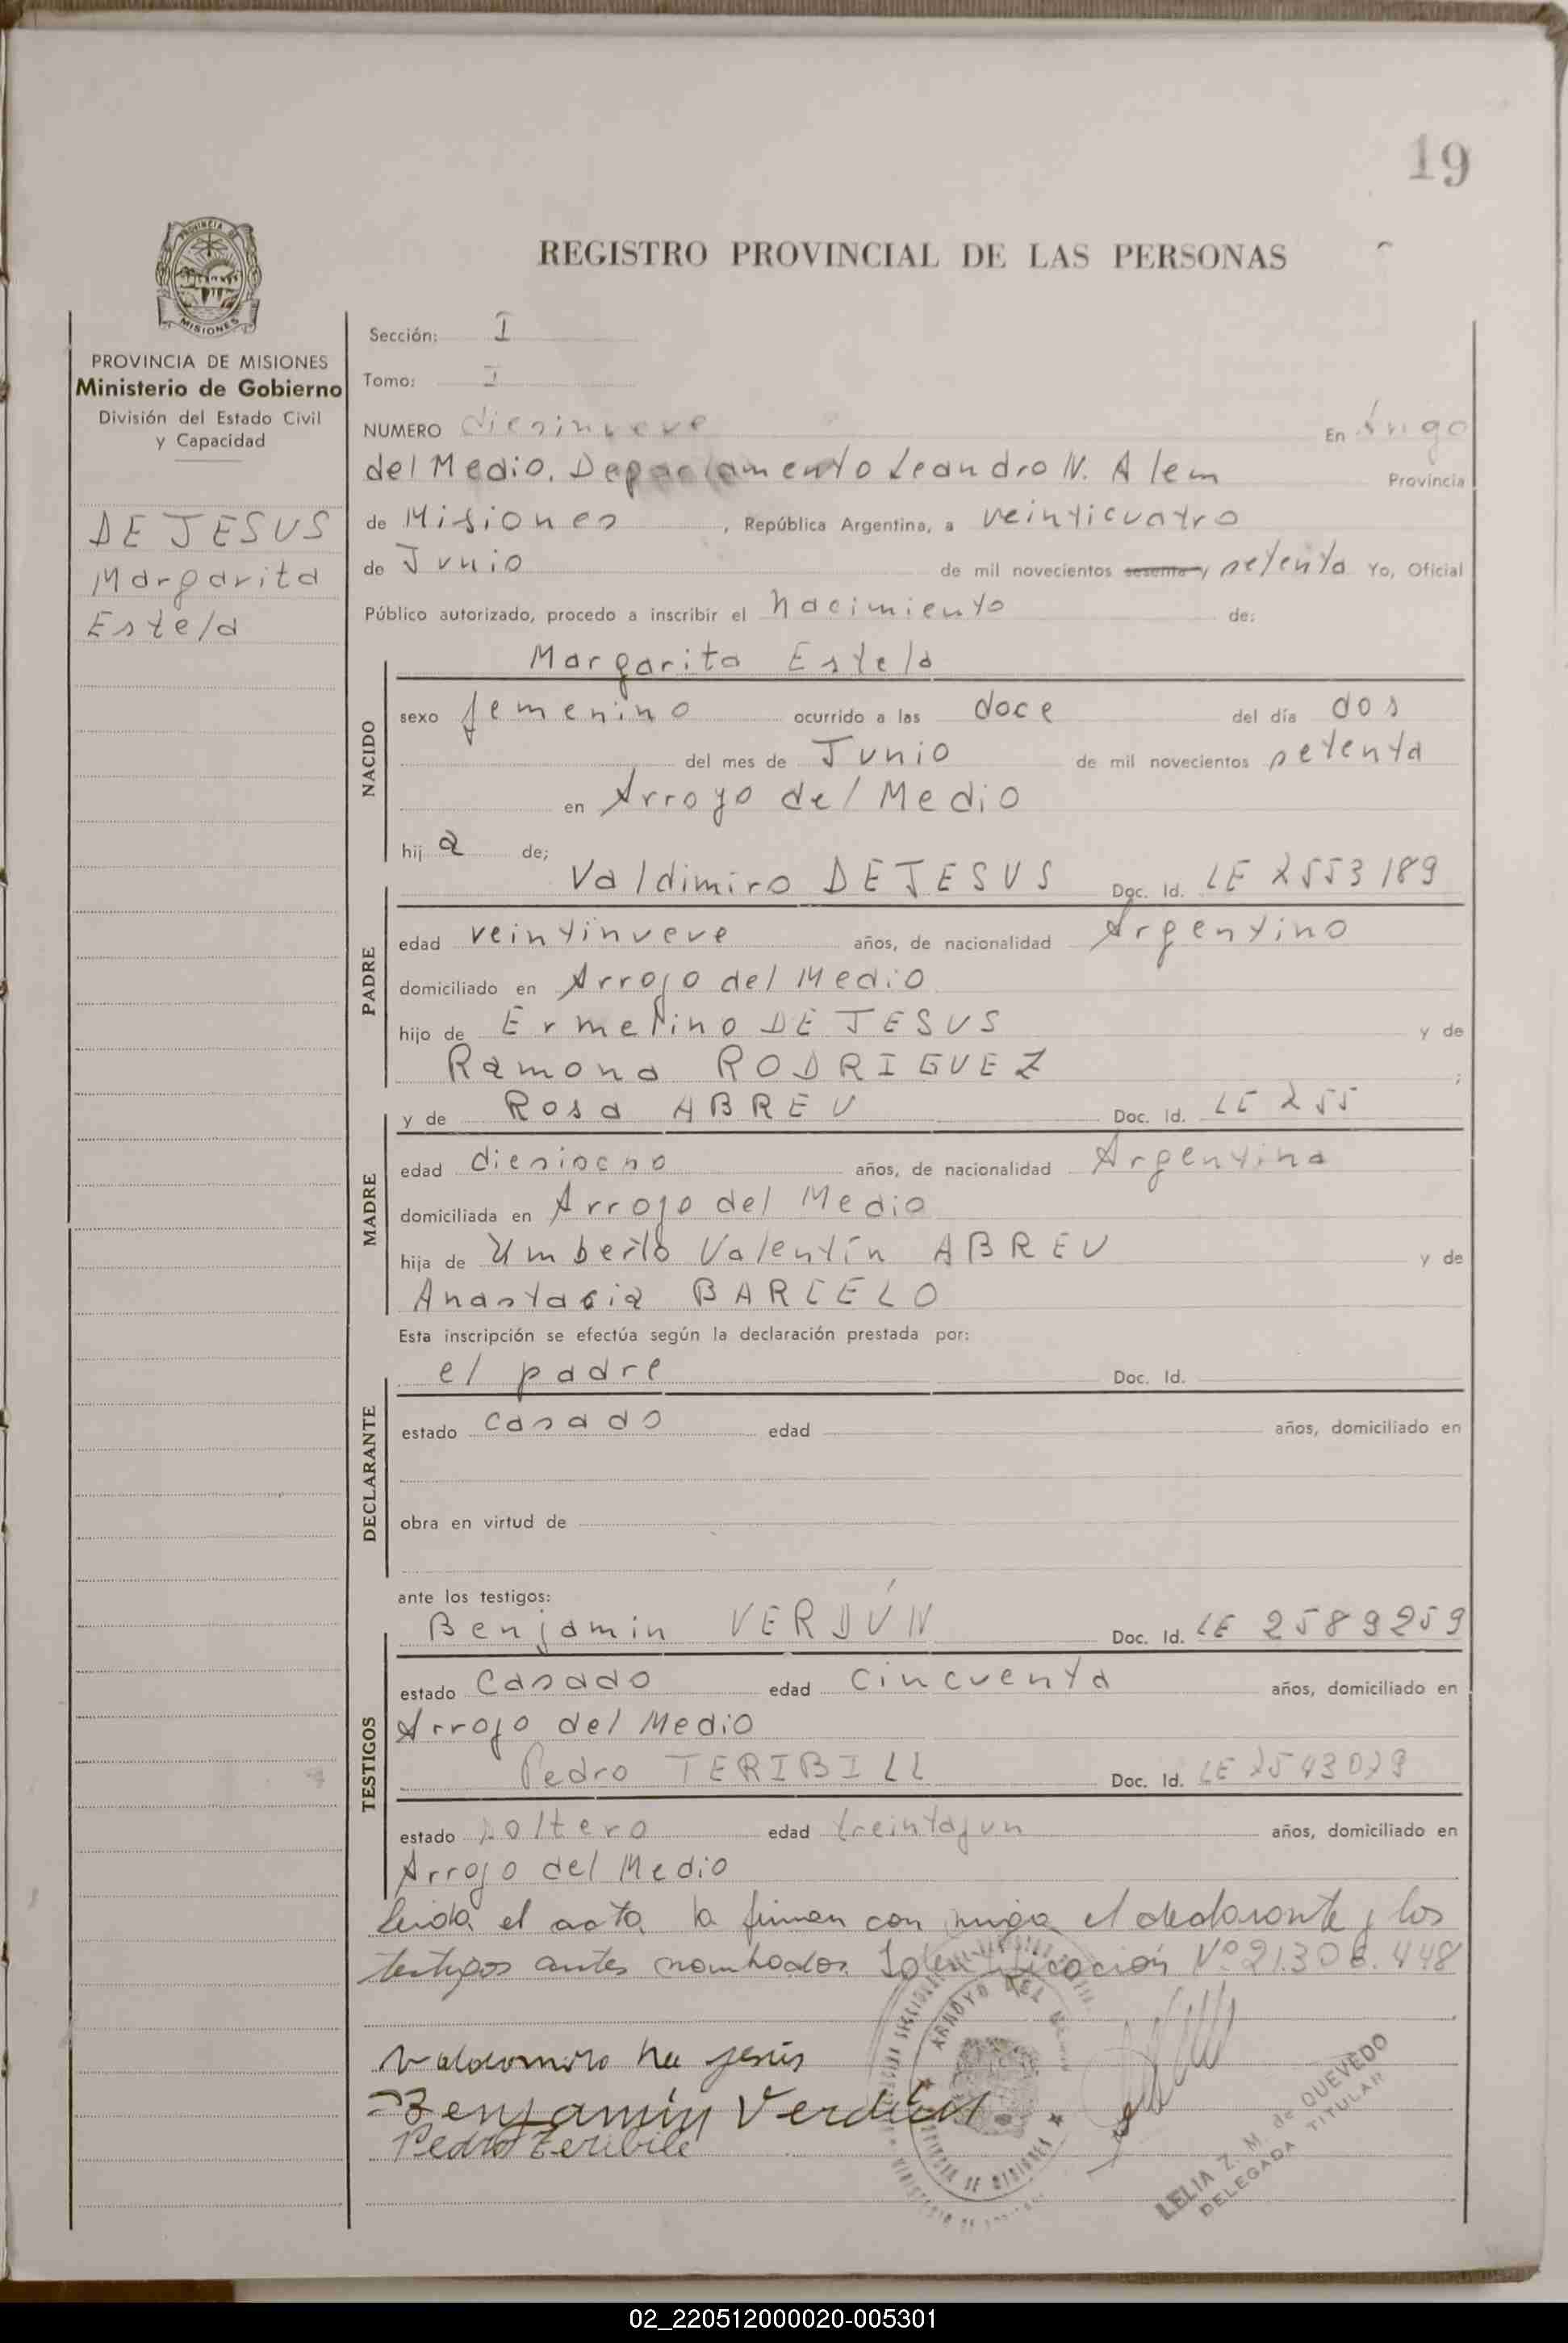 19
REGISTRO PROVINCIAL DE LAS PERSONAS
PROVINCIA DE MISIONES
Ministerio de Gobierno
División del Estado Civil
y Capacidad
DE JESUS
Margarita
Estela
Sección: I
Tomo: I
NUMERO diesinueve En
del Medio. Departamento Leandro N. Alem Provincia
de Misiones, República Argentina, a veinticuatro
de Junio de mil novecientos sesenta y setenta Yo, Oficial
Público autorizado, procedo a inscribir el nacimiento de:
Margarita Estela
NACIDO
sexo femenino ocurrido a las doce del día dos
del mes de Junio de mil novecientos setenta
en Arroyo del Medio
hija de;
Valdimiro DE JESUS Doc. Id. LE 2553189
PADRE
edad veintinueve años, de nacionalidad Argentino
domiciliado en Arroyo del Medio
hijo de Ermelino DE JESUS y de
Ramona RODRIGUEZ ;
y de Rosa ABREU Doc. Id. LE 255
MADRE
edad diesiocho años, de nacionalidad Argentina
domiciliada en Arroyo del Medio
hija de Umberto Valentín ABREU y de
Anastasia BARCELO
Esta inscripción se efectúa según la declaración prestada por:
el padre Doc. Id.
DECLARANTE
estado casado edad años, domiciliado en
obra en virtud de
ante los testigos:
Benjamin VERDÚN Doc. Id. LE 2589259
TESTIGOS
estado Casado edad cincuenta años, domiciliado en
Arroyo del Medio
Pedro TERIBILL Doc. Id. LE 2543029
estado soltero edad treintayun años, domiciliado en
Arroyo del Medio
leida el acta la firman con migo el declarante y los
testigos antes nombrados. Identificación Nº 21.306.448
ARROYO DEL
Benjamín Verdún
Pedro Teribile
LELIA Z. M. de QUEVEDO
DELEGADA TITULAR
02_220512000020-005301